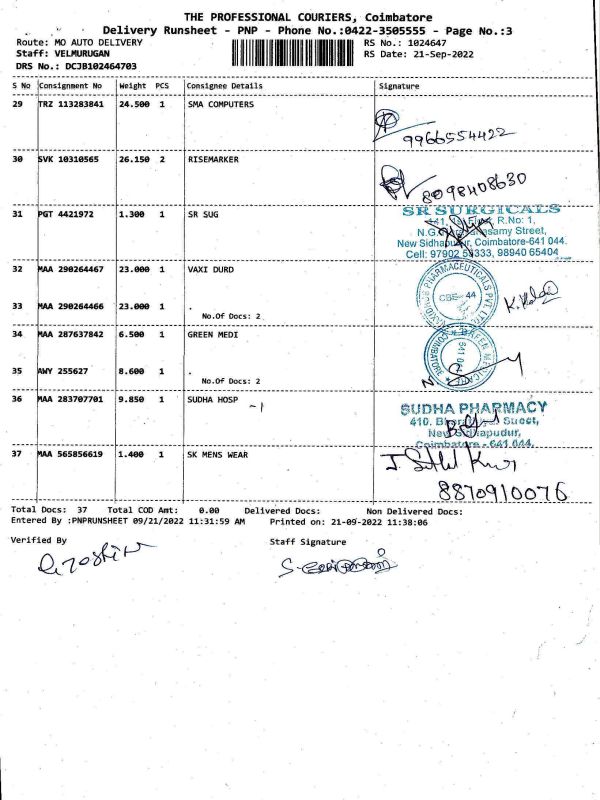 THE PROFESSIONAL COURIERS, Coimbatore
Delivery Runsheet - PNP - Phone No.:0422-3505555 - Page No.:3
Route: MO AUTO DELIVERY RS No.: 1024647
Staff: VELMURUGAN RS Date: 21-Sep-2022
DRS No.: DCJB102464703
S No Consignment No Weight PCS Consignee Details Signature
29 TRZ 113283841 24.500 1 SMA COMPUTERS
9966554422
30 SVK 10310565 26.150 2 RISEMARKER
8098408630
31 PGT 4421972 1.300 1 SR SUG
SR SURGICALS
R.No: 1,
N.G. samy Street,
New Sidhapudur, Coimbatore-641 044.
Cell: 97902 59333, 98940 65404
32 MAA 290264467 23.000 1 VAXI DURD
PHARMACEUTICALS PVT LTD
CBE- 44
33 MAA 290264466 23.000 1 .
No.Of Docs: 2
34 MAA 287637842 6.500 1 GREEN MEDI
35 AWY 255627 8.600 1 .
No.Of Docs: 2
36 MAA 283707701 9.850 1 SUDHA HOSP
-1
SUDHA PHARMACY
410,
New Sidhapudur,
Coimbatore - 641 044.
37 MAA 565856619 1.400 1 SK MENS WEAR
8870910076
Total Docs: 37 Total COD Amt: 0.00 Delivered Docs: Non Delivered Docs:
Entered By :PNPRUNSHEET 09/21/2022 11:31:59 AM Printed on: 21-09-2022 11:38:06
Verified By Staff Signature